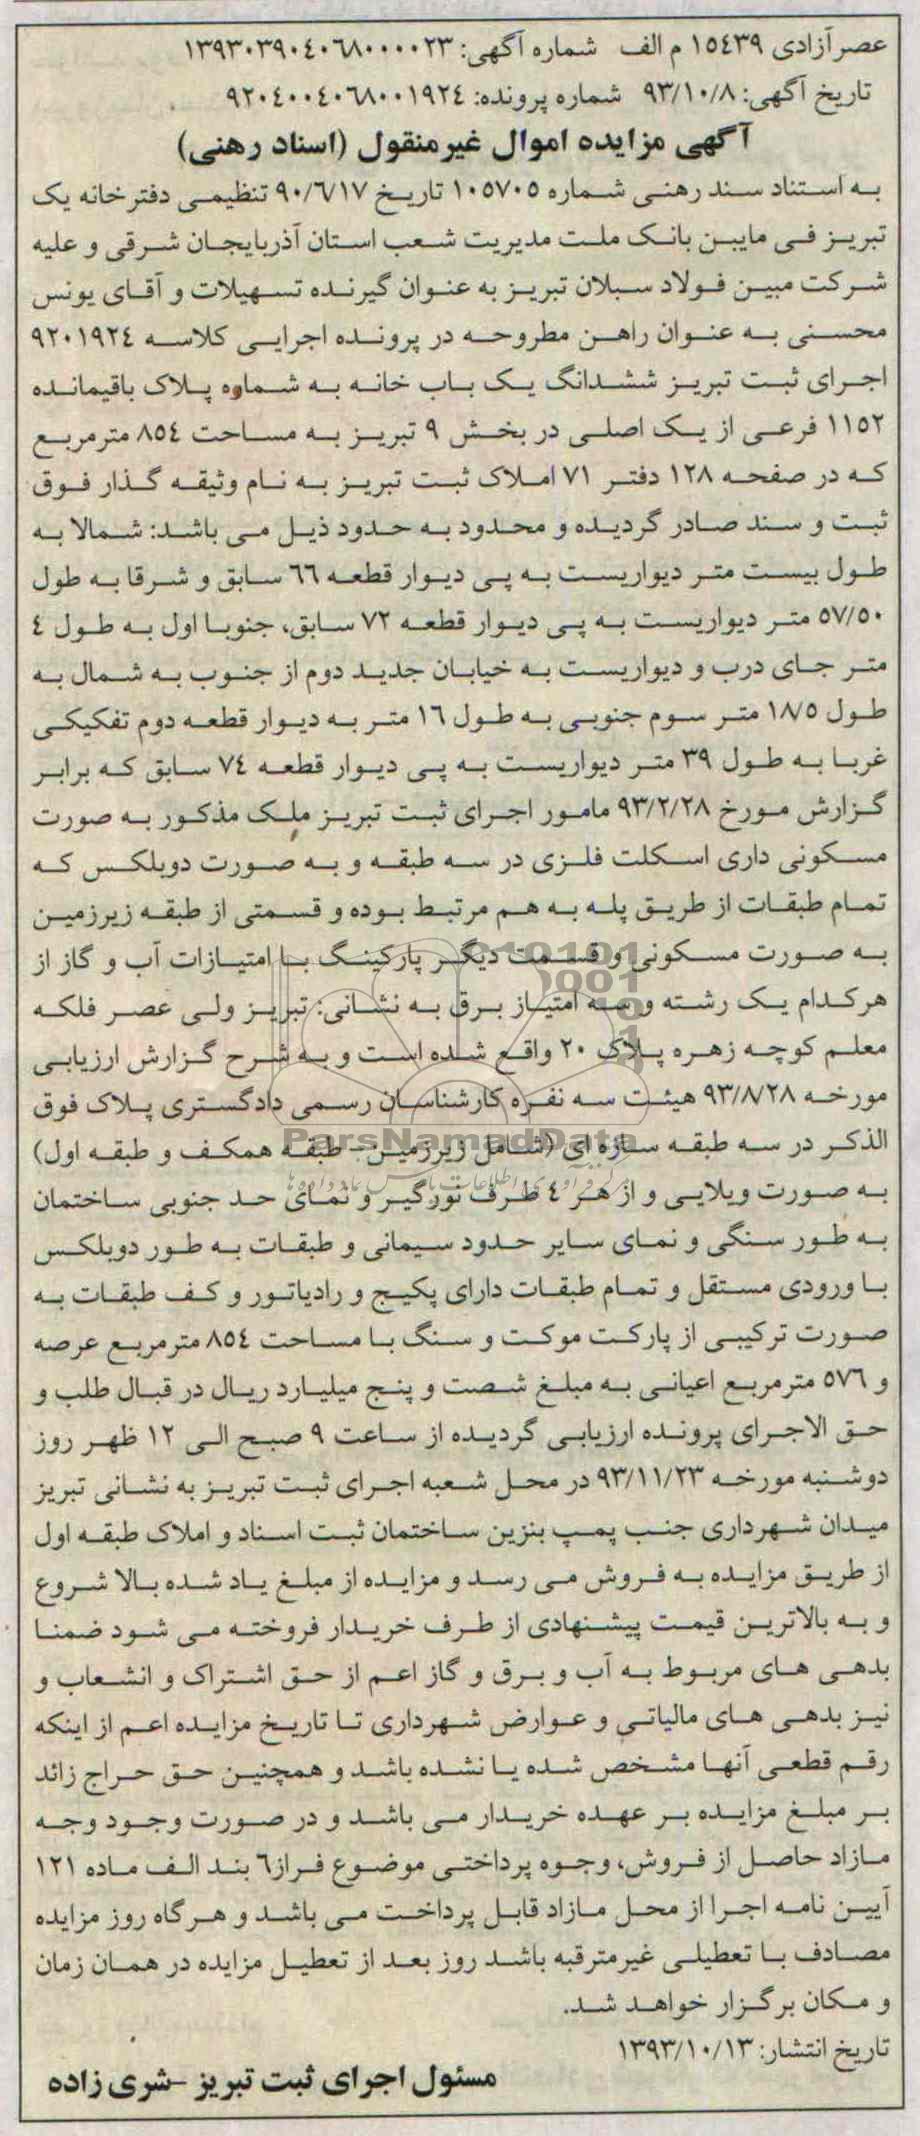 عصر آزادی ۱۵٤۳۹ م الف   شماره آگهی: ۱۳۹۳۰۳۹۰٤۰٦۸۰۰۰۰۲۳
تاریخ آگهی: ۹۳/۱۰/۸   شماره پرونده: ۹۲۰٤۰۰٤۰٦۸۰۰۱۹۲٤
آگهی مزایده اموال غیرمنقول (اسناد رهنی)
به استناد سند رهنی شماره ۱۰۵۷۰۵ تاریخ ۹۰/٦/۱۷ تنظیمی دفترخانه یک
تبریز فی مابین بانک ملت مدیریت شعب استان آذربایجان شرقی و علیه
شرکت مبین فولاد سبلان تبریز به عنوان گیرنده تسهیلات و آقای یونس
محسنی به عنوان راهن مطروحه در پرونده اجرایی کلاسه ۹۲۰۱۹۲٤
اجرای ثبت تبریز ششدانگ یک باب خانه به شماره پلاک باقیمانده
۱۱۵۲ فرعی از یک اصلی در بخش ۹ تبریز به مساحت ۸۵٤ مترمربع
که در صفحه ۱۲۸ دفتر ۷۱ املاک ثبت تبریز به نام وثیقه گذار فوق
ثبت و سند صادر گردیده و محدود به حدود ذیل می باشد: شمالا به
طول بیست متر دیواریست به پی دیوار قطعه ٦٦ سابق و شرقا به طول
۵۷/۵۰ متر دیواریست به پی دیوار قطعه ۷۲ سابق، جنوبا اول به طول ٤
متر جای درب و دیواریست به خیابان جدید دوم از جنوب به شمال به
طول ۱۸/۵ متر سوم جنوبی به طول ۱٦ متر به دیوار قطعه دوم تفکیکی
غربا به طول ۳۹ متر دیواریست به پی دیوار قطعه ۷٤ سابق که برابر
گزارش مورخ ۹۳/۲/۲۸ مامور اجرای ثبت تبریز ملک مذکور به صورت
مسکونی داری اسکلت فلزی در سه طبقه و به صورت دوبلکس که
تمام طبقات از طریق پله به هم مرتبط بوده و قسمتی از طبقه زیرزمین
به صورت مسکونی و قسمت دیگر پارکینگ با امتیازات آب و گاز از
هرکدام یک رشته و سه امتیاز برق به نشانی: تبریز ولی عصر فلکه
معلم کوچه زهره پلاک ۲۰ واقع شده است و به شرح گزارش ارزیابی
مورخه ۹۳/۸/۲۸ هیئت سه نفره کارشناسان رسمی دادگستری پلاک فوق
الذکر در سه طبقه سازه ای (شامل زیرزمین- طبقه همکف و طبقه اول)
به صورت ویلایی و از هر ٤ طرف نورگیر و نمای حد جنوبی ساختمان
به طور سنگی و نمای سایر حدود سیمانی و طبقات به طور دوبلکس
با ورودی مستقل و تمام طبقات دارای پکیج و رادیاتور و کف طبقات به
صورت ترکیبی از پارکت موکت و سنگ با مساحت ۸۵٤ مترمربع عرصه
و ۵۷٦ مترمربع اعیانی به مبلغ شصت و پنج میلیارد ریال در قبال طلب و
حق الاجرای پرونده ارزیابی گردیده از ساعت ۹ صبح الی ۱۲ ظهر روز
دوشنبه مورخه ۹۳/۱۱/۲۳ در محل شعبه اجرای ثبت تبریز به نشانی تبریز
میدان شهرداری جنب پمپ بنزین ساختمان ثبت اسناد و املاک طبقه اول
از طریق مزایده به فروش می رسد و مزایده از مبلغ یاد شده بالا شروع
و به بالاترین قیمت پیشنهادی از طرف خریدار فروخته می شود ضمنا
بدهی های مربوط به آب و برق و گاز اعم از حق اشتراک و انشعاب و
نیز بدهی های مالیاتی و عوارض شهرداری تا تاریخ مزایده اعم از اینکه
رقم قطعی آنها مشخص شده یا نشده باشد و همچنین حق حراج زائد
بر مبلغ مزایده بر عهده خریدار می باشد و در صورت وجود وجه
مازاد حاصل از فروش، وجوه پرداختی موضوع فراز٦ بند الف ماده ۱۲۱
آیین نامه اجرا از محل مازاد قابل پرداخت می باشد و هرگاه روز مزایده
مصادف با تعطیلی غیرمترقبه باشد روز بعد از تعطیل مزایده در همان زمان
و مکان برگزار خواهد شد.
تاریخ انتشار: ۱۳۹۳/۱۰/۱۳
مسئول اجرای ثبت تبریز -شری زاده
ParsNamadData